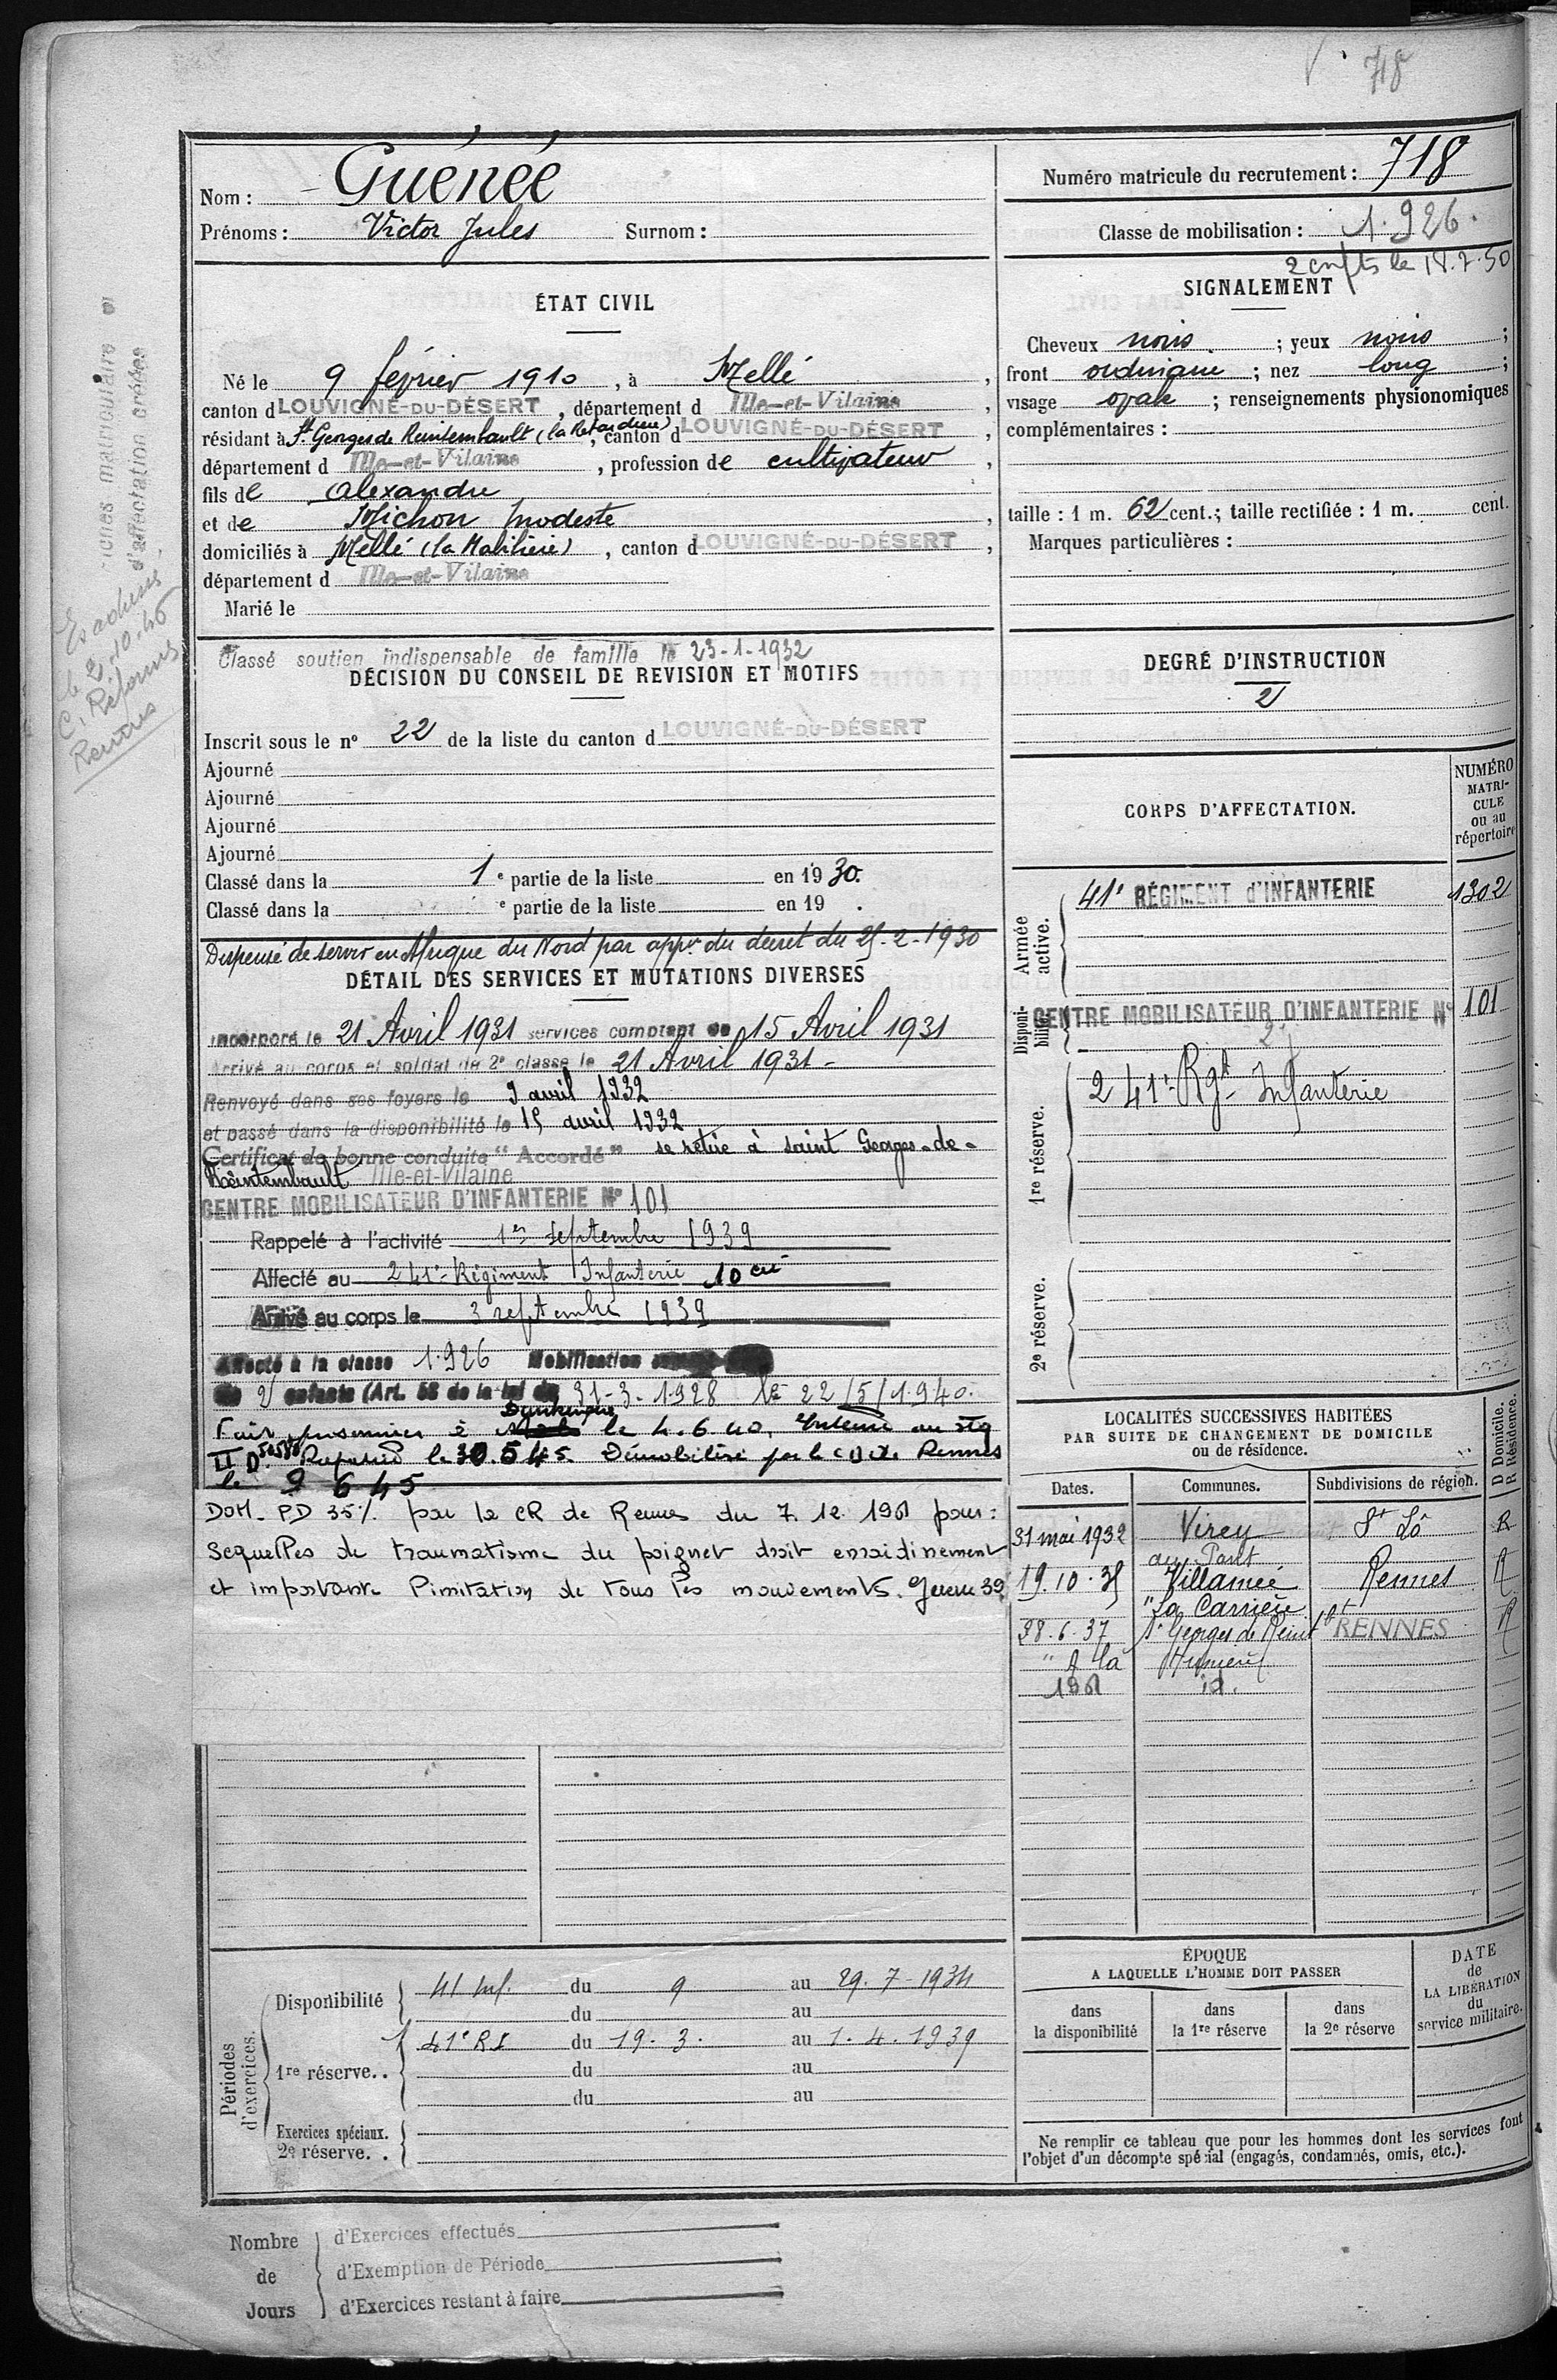 718
Nom : Guénéé
Prénoms : Victor Jules Surnom :
Numéro matricule du recrutement : 718
Classe de mobilisation : 1.926.
2 enfts le 18.7.50
ÉTAT CIVIL
Né le 9 février 1910, à Mellé,
canton d LOUVIGNÉ-DU-DÉSERT, département d Ille-et-Vilaine,
résidant à St Georges de Reintembault (la Retardière), canton d LOUVIGNÉ-DU-DÉSERT,
département d Ille-et-Vilaine, profession de cultivateur,
fils de Alexandre
et de Michon Modeste,
domiciliés à Mellé (la Malihière), canton d LOUVIGNÉ-DU-DÉSERT,
département d Ille-et-Vilaine
Marié le
SIGNALEMENT
Cheveux noirs ; yeux noirs ;
front ordinaire ; nez long ;
visage ovale ; renseignements physionomiques
complémentaires :
taille : 1 m. 62 cent.; taille rectifiée : 1 m. cent.
Marques particulières :
fiches matriculaire et
d'affectation créées
le 2.10.45
C. Réforme
Rennes
Classé soutien indispensable de famille le 23-1-1932
DÉCISION DU CONSEIL DE REVISION ET MOTIFS
Inscrit sous le no 22 de la liste du canton d LOUVIGNÉ-DU-DÉSERT
Ajourné
Ajourné
Ajourné
Ajourné
Classé dans la 1e partie de la liste en 1930.
Classé dans la e partie de la liste en 19 .
DEGRÉ D'INSTRUCTION
2
Dispensé de servir en Afrique du Nord par appon du décret du 25-2-1930
DÉTAIL DES SERVICES ET MUTATIONS DIVERSES
Incorporé le 21 Avril 1931 services comptant du 15 Avril 1931
Arrivé au corps et soldat de 2e classe le 21 Avril 1931 -
Renvoyé dans ses foyers le 9 avril 1932
et passé dans la disponibilité le 15 avril 1932
Certificat de bonne conduite "Accordé" se retire à saint Georges-de-
Reintembault Ille-et-Vilaine
CENTRE MOBILISATEUR D'INFANTERIE No 101
Rappelé à l'activité 1er septembre 1939
Affecté au 241e Régiment Infanterie 10 cie
Arrivé au corps le 3 septembre 1939
Affecté à la classe 1.926 Mobilisation
2 enfants (Art. 58 de la loi du 31-3-1928 le 22/5/1940.
Dunkerque
Fait prisonnier à le 4.6.40, Interné au stg
II D Rapatrié le 30.5.45. Démobilisé par le CD de Rennes
le 9 6 45
DOM. PD 35% par le CR de Rennes du 7.12.1961 pour :
Sequelles de traumatisme du poignet droit enraidissement
et importante limitation de tous les mouvements. Guerre 39
CORPS D'AFFECTATION.
NUMÉRO MATRI-CULE ou au répertoire
Armée active.
41e RÉGIMENT d'INFANTERIE 1302
Disponi-bilité
CENTRE MOBILISATEUR D'INFANTERIE No 101
1re réserve.
241e Rgt Infanterie
2e réserve.
LOCALITÉS SUCCESSIVES HABITÉES
PAR SUITE DE CHANGEMENT DE DOMICILE
ou de résidence.
Dates. Communes. Subdivisions de région. D Domicile. R Résidence.
31 mai 1932 Virey St Lô R
au Pont
19.10.35 Villamée Rennes R
"La Carrière
28.6.37 St Georges de Reint bt RENNES R
" A la
1961 id.
Périodes d'exercices.
Disponibilité 41 Inf. du 9 au 29.7-1934
du au
1re réserve.. 41e R.I. du 19.3. au 1.4.1939
du au
du au
Exercices spéciaux.
2e réserve. .
ÉPOQUE
A LAQUELLE L'HOMME DOIT PASSER
dans la disponibilité
dans la 1re réserve
dans la 2e réserve
DATE de LA LIBÉRATION du service militaire.
Ne remplir ce tableau que pour les hommes dont les services font
l'objet d'un décompte spécial (engagés, condamnés, omis, etc.).
Nombre de Jours
d'Exercices effectués
d'Exemption de Période
d'Exercices restant à faire